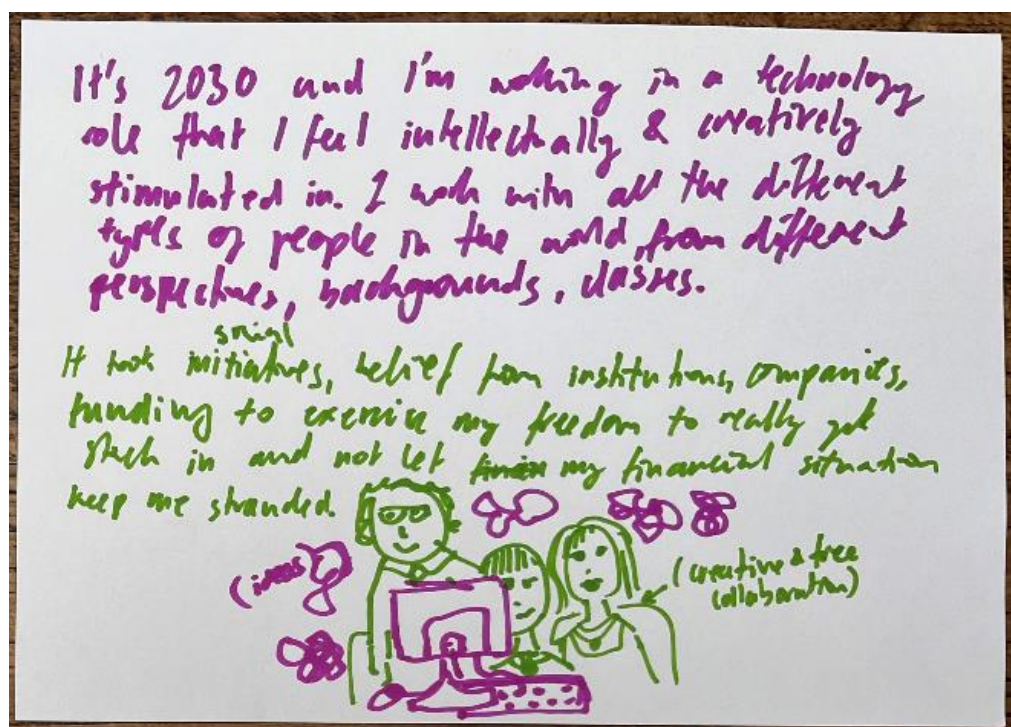 It's 2030 and I'm working in a technology
role that I feel intellectually & creatively
stimulated in. I work with all the different
types of people in the world, from different
perspectives, backgrounds, classes.
social
It took initiatives, belief from institutions, companies,
funding to exercise my freedom to really get
stuck in and not let my financial situation
keep me stranded.
(ideas)
(creative & free
collaboration)